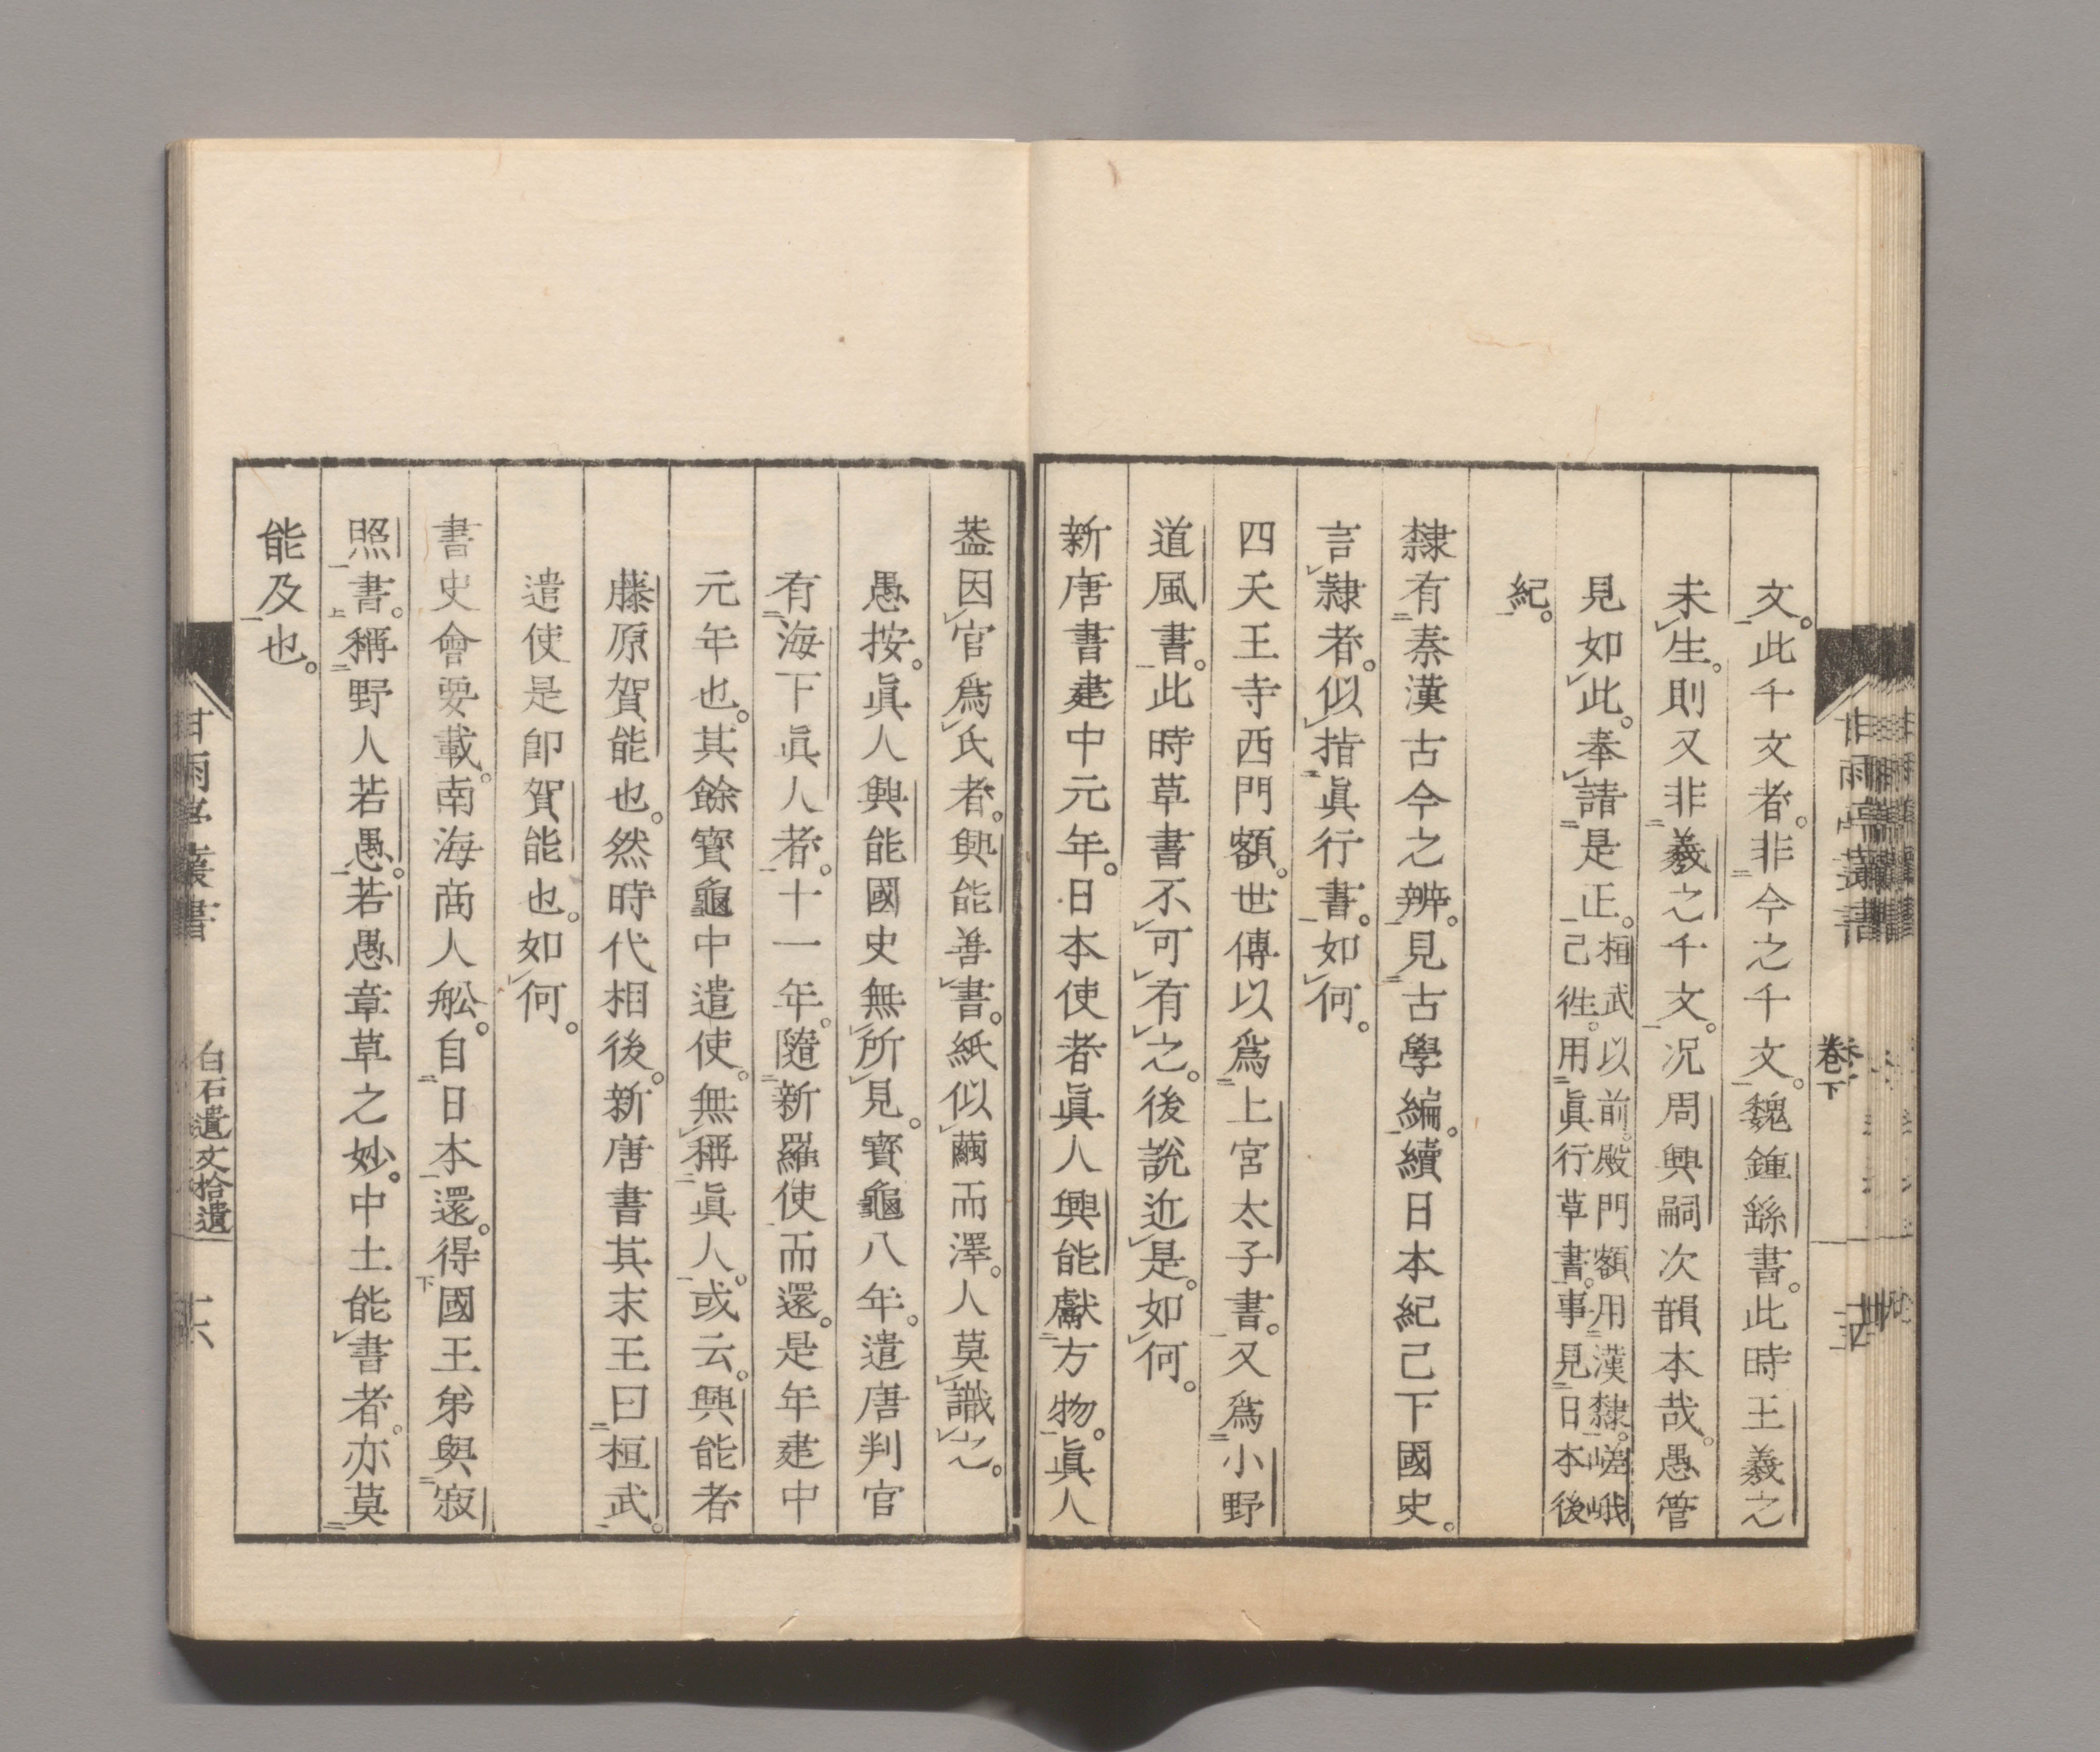 文。此千文者。非今之千文。魏鍾繇書。此時王羲之
未生。則又非羲之千文。况周興嗣次韻本哉。愚管
見如此。奉請是正。桓武以前。殿門額用漢隸。嵯峨
己徃。用眞行草書。事見日本後
紀。
隸有秦漢古今之辨。見古學編。續日本紀己下國史。
言隸者。似指眞行書。如何。
四天王寺西門額。世傳以爲上宮太子書。又爲小野
道風書。此時草書不可有之。後說近是。如何。
新唐書建中元年。日本使者眞人興能獻方物。眞人
葢因官爲氏者。興能善書。紙似繭而澤。人莫識之。
愚按。眞人興能國史無所見。寶龜八年。遣唐判官
有海下眞人者。十一年。隨新羅使而還。是年建中
元年也。其餘寶龜中遣使。無稱眞人。或云。興能者
藤原賀能也。然時代相後。新唐書其末王曰桓武。
遣使是卽賀能也。如何。
書史會要載。南海商人舩。自日本還。得國王弟與寂
照書。稱野人若愚。若愚章草之妙。中土能書者。亦莫
能及也。
甘雨亭叢書
卷下
甘雨亭叢書
白石遺文拾遺
十六